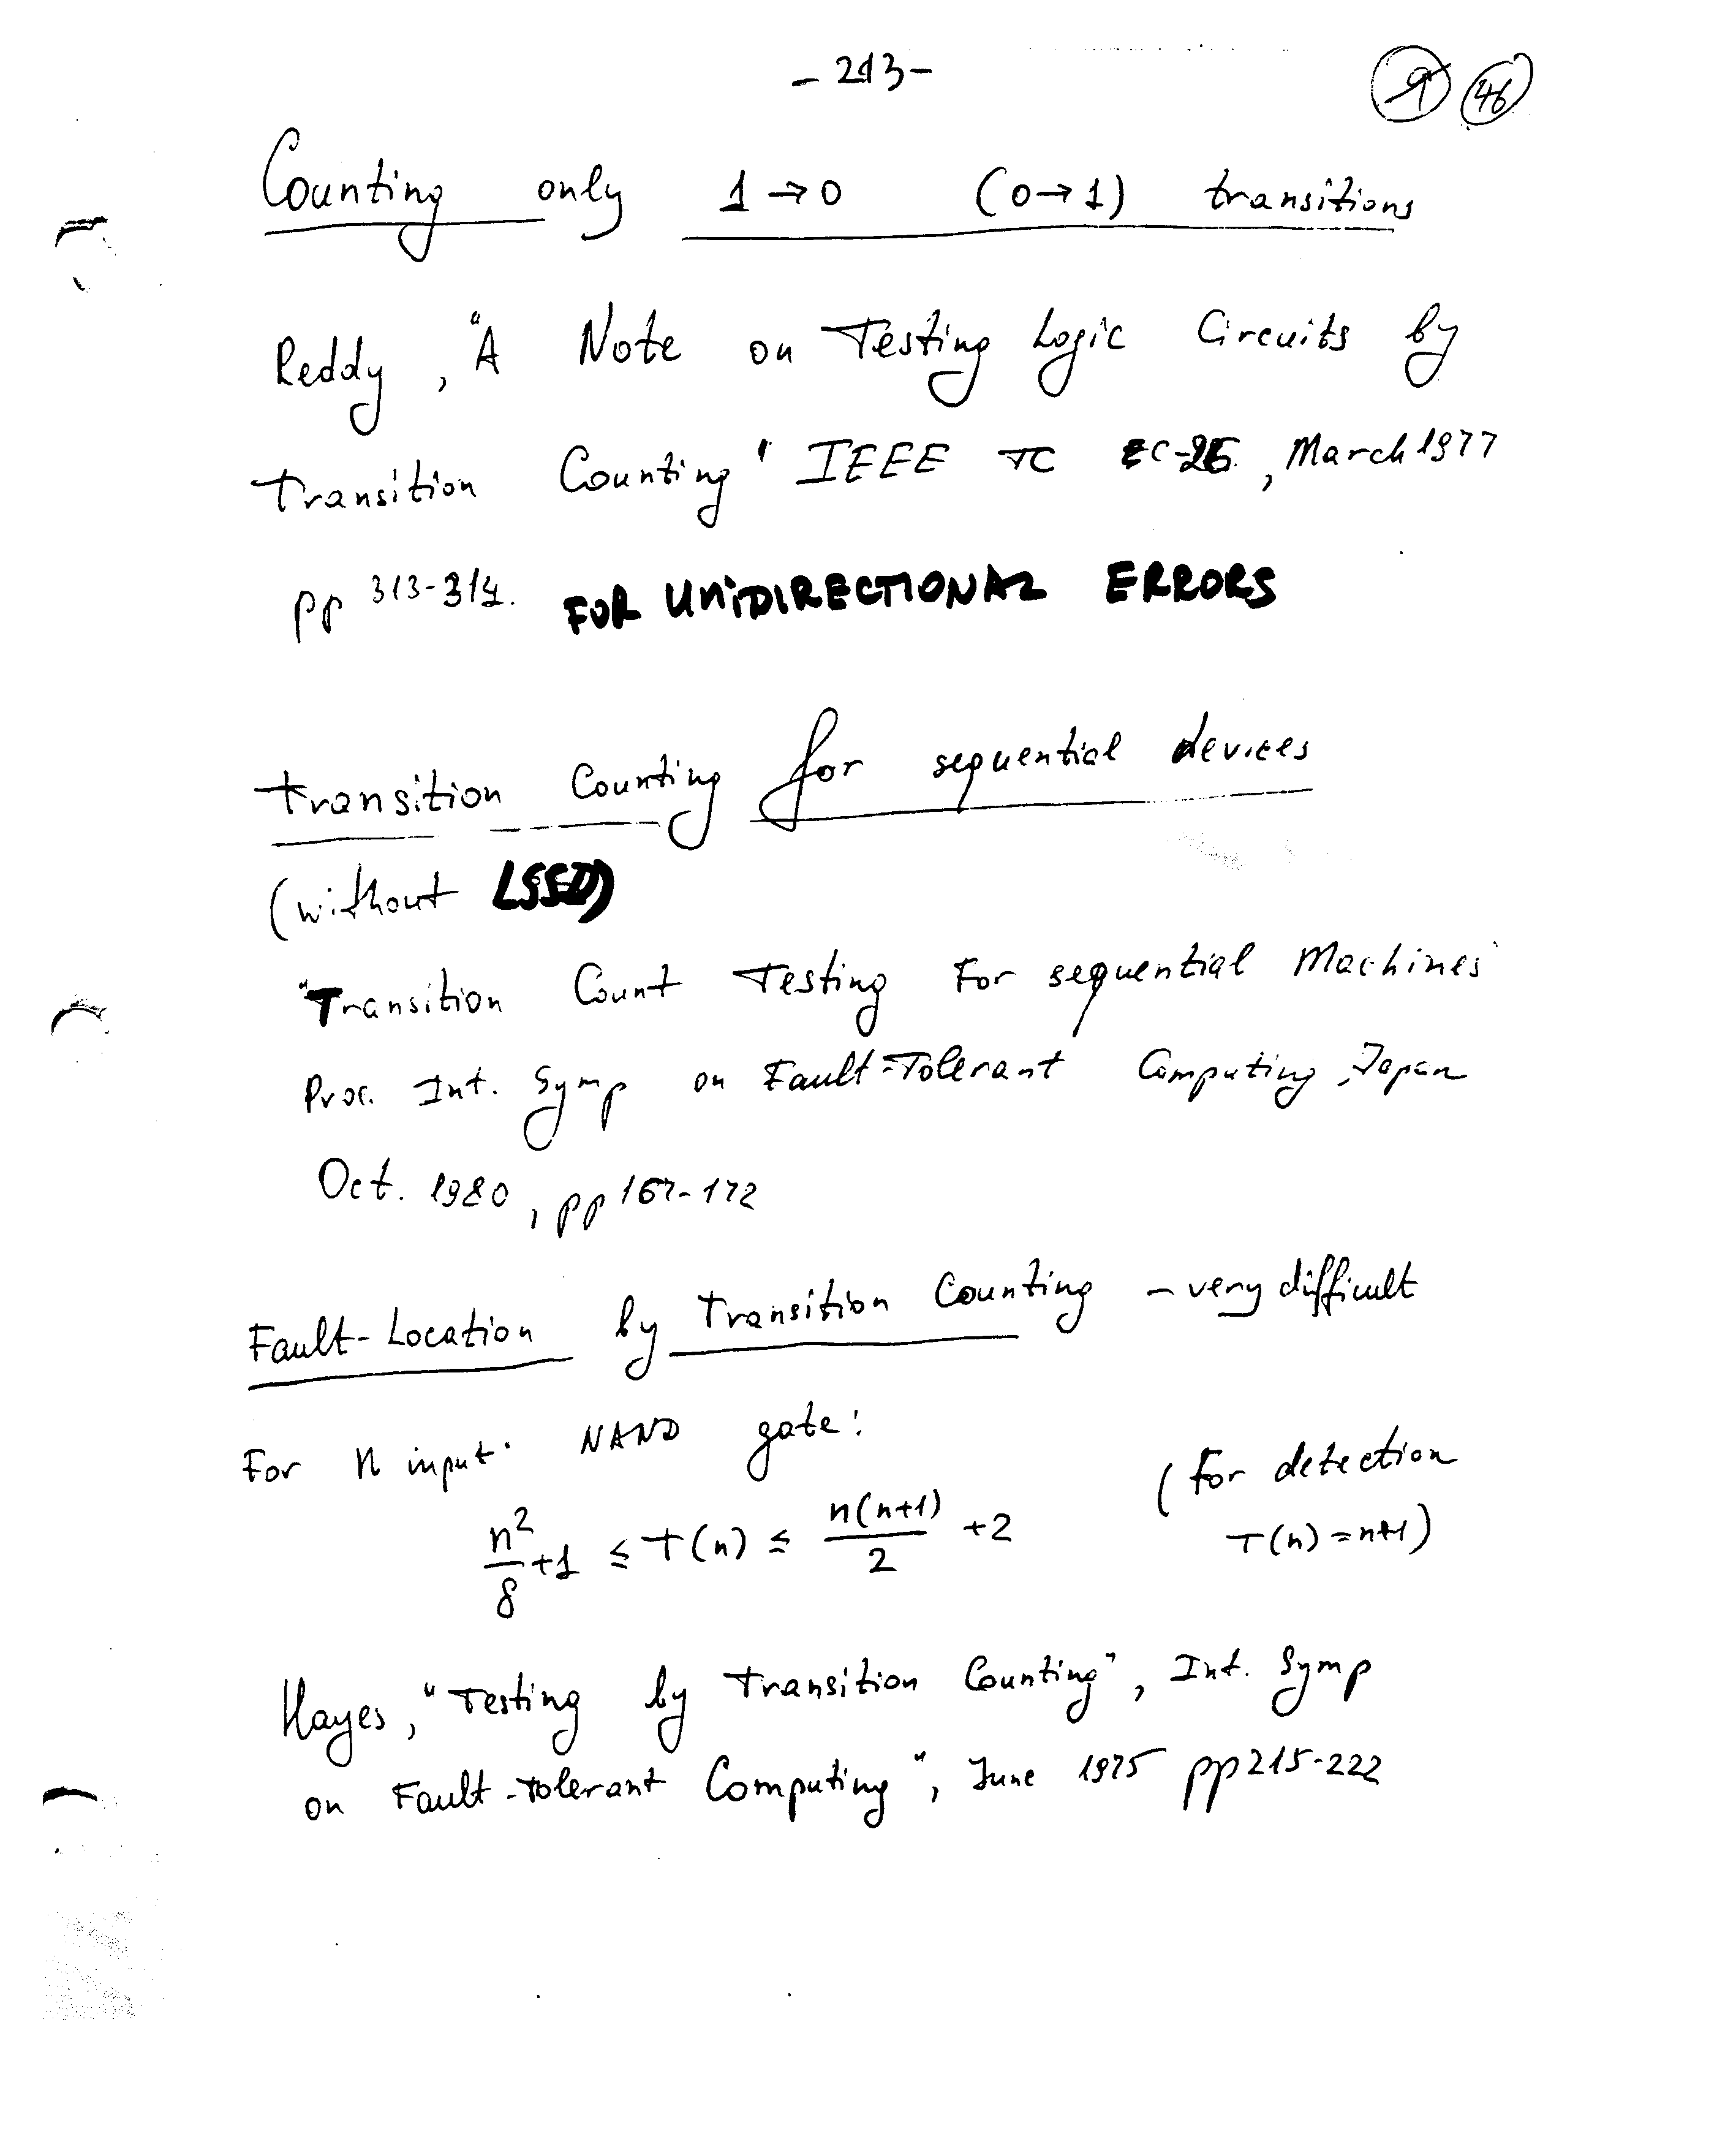 - 213 -
9 46
Counting only 1→0 (0→1) transitions
Reddy, "A Note on Testing Logic Circuits by
Transition Counting" IEEE TC EC-26, March 1977
pp 313-314. FOR UNIDIRECTIONAL ERRORS
Transition Counting for sequential devices
(without LSSD)
"Transition Count Testing For sequential Machines
Proc. Int. Symp on Fault-Tolerant Computing, Japan
Oct. 1980, pp 167-172
Fault-Location by Transition Counting - very difficult
For n input NAND gate:
(For detection
n²/8 +1 ≤ T(n) ≤ n(n+1)/2 +2
T(n) = n+1)
Hayes, "Testing by Transition Counting", Int. Symp
on Fault-Tolerant Computing", June 1975 pp 215-222